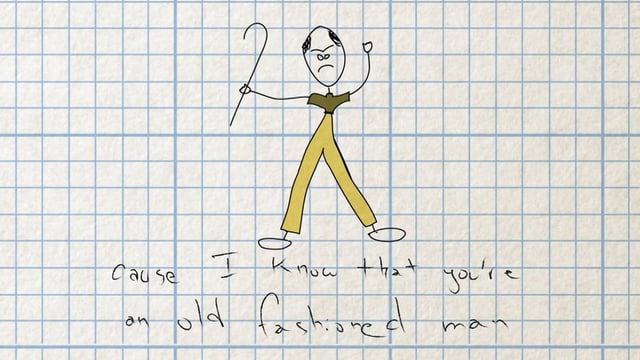 cause I know that you're
an old fashioned man